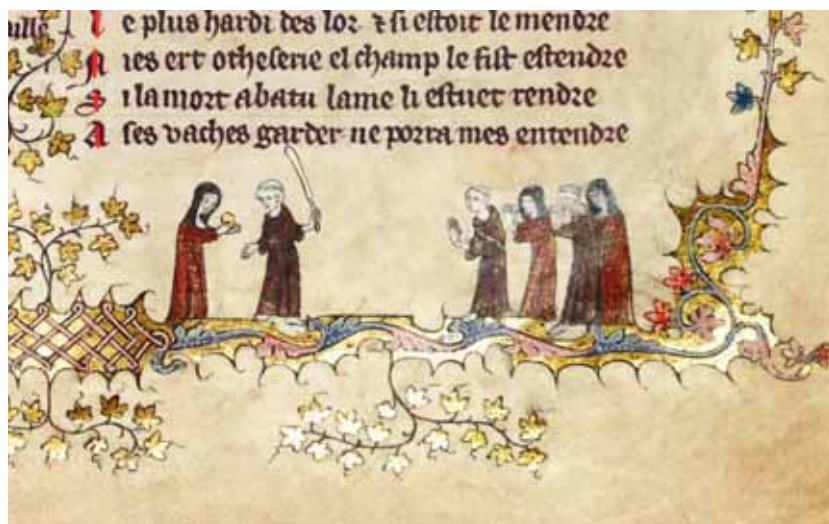 l e plus hardi des lor ⁊ si estoit le mendre
N ies ert otheserie el champ le fist estendre
S i la mort abatu lame li estuet rendre
A ses vaches garder ne porra mes entendre